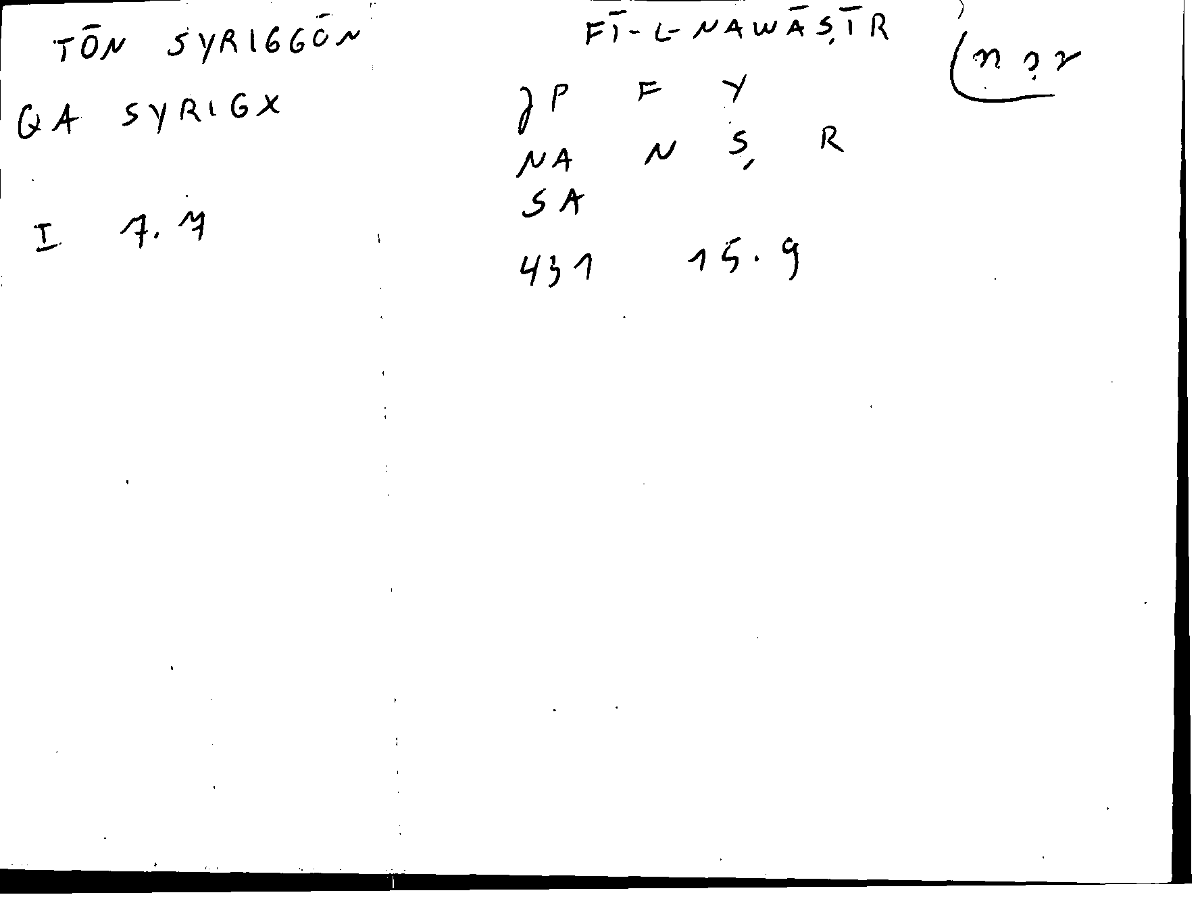 TŌN SYRIGGŌN
QA SYRIGX
I 7.7
FĪ-L-NAWĀṢĪR
F Y
NA N Ṣ R
SA
431 15.9